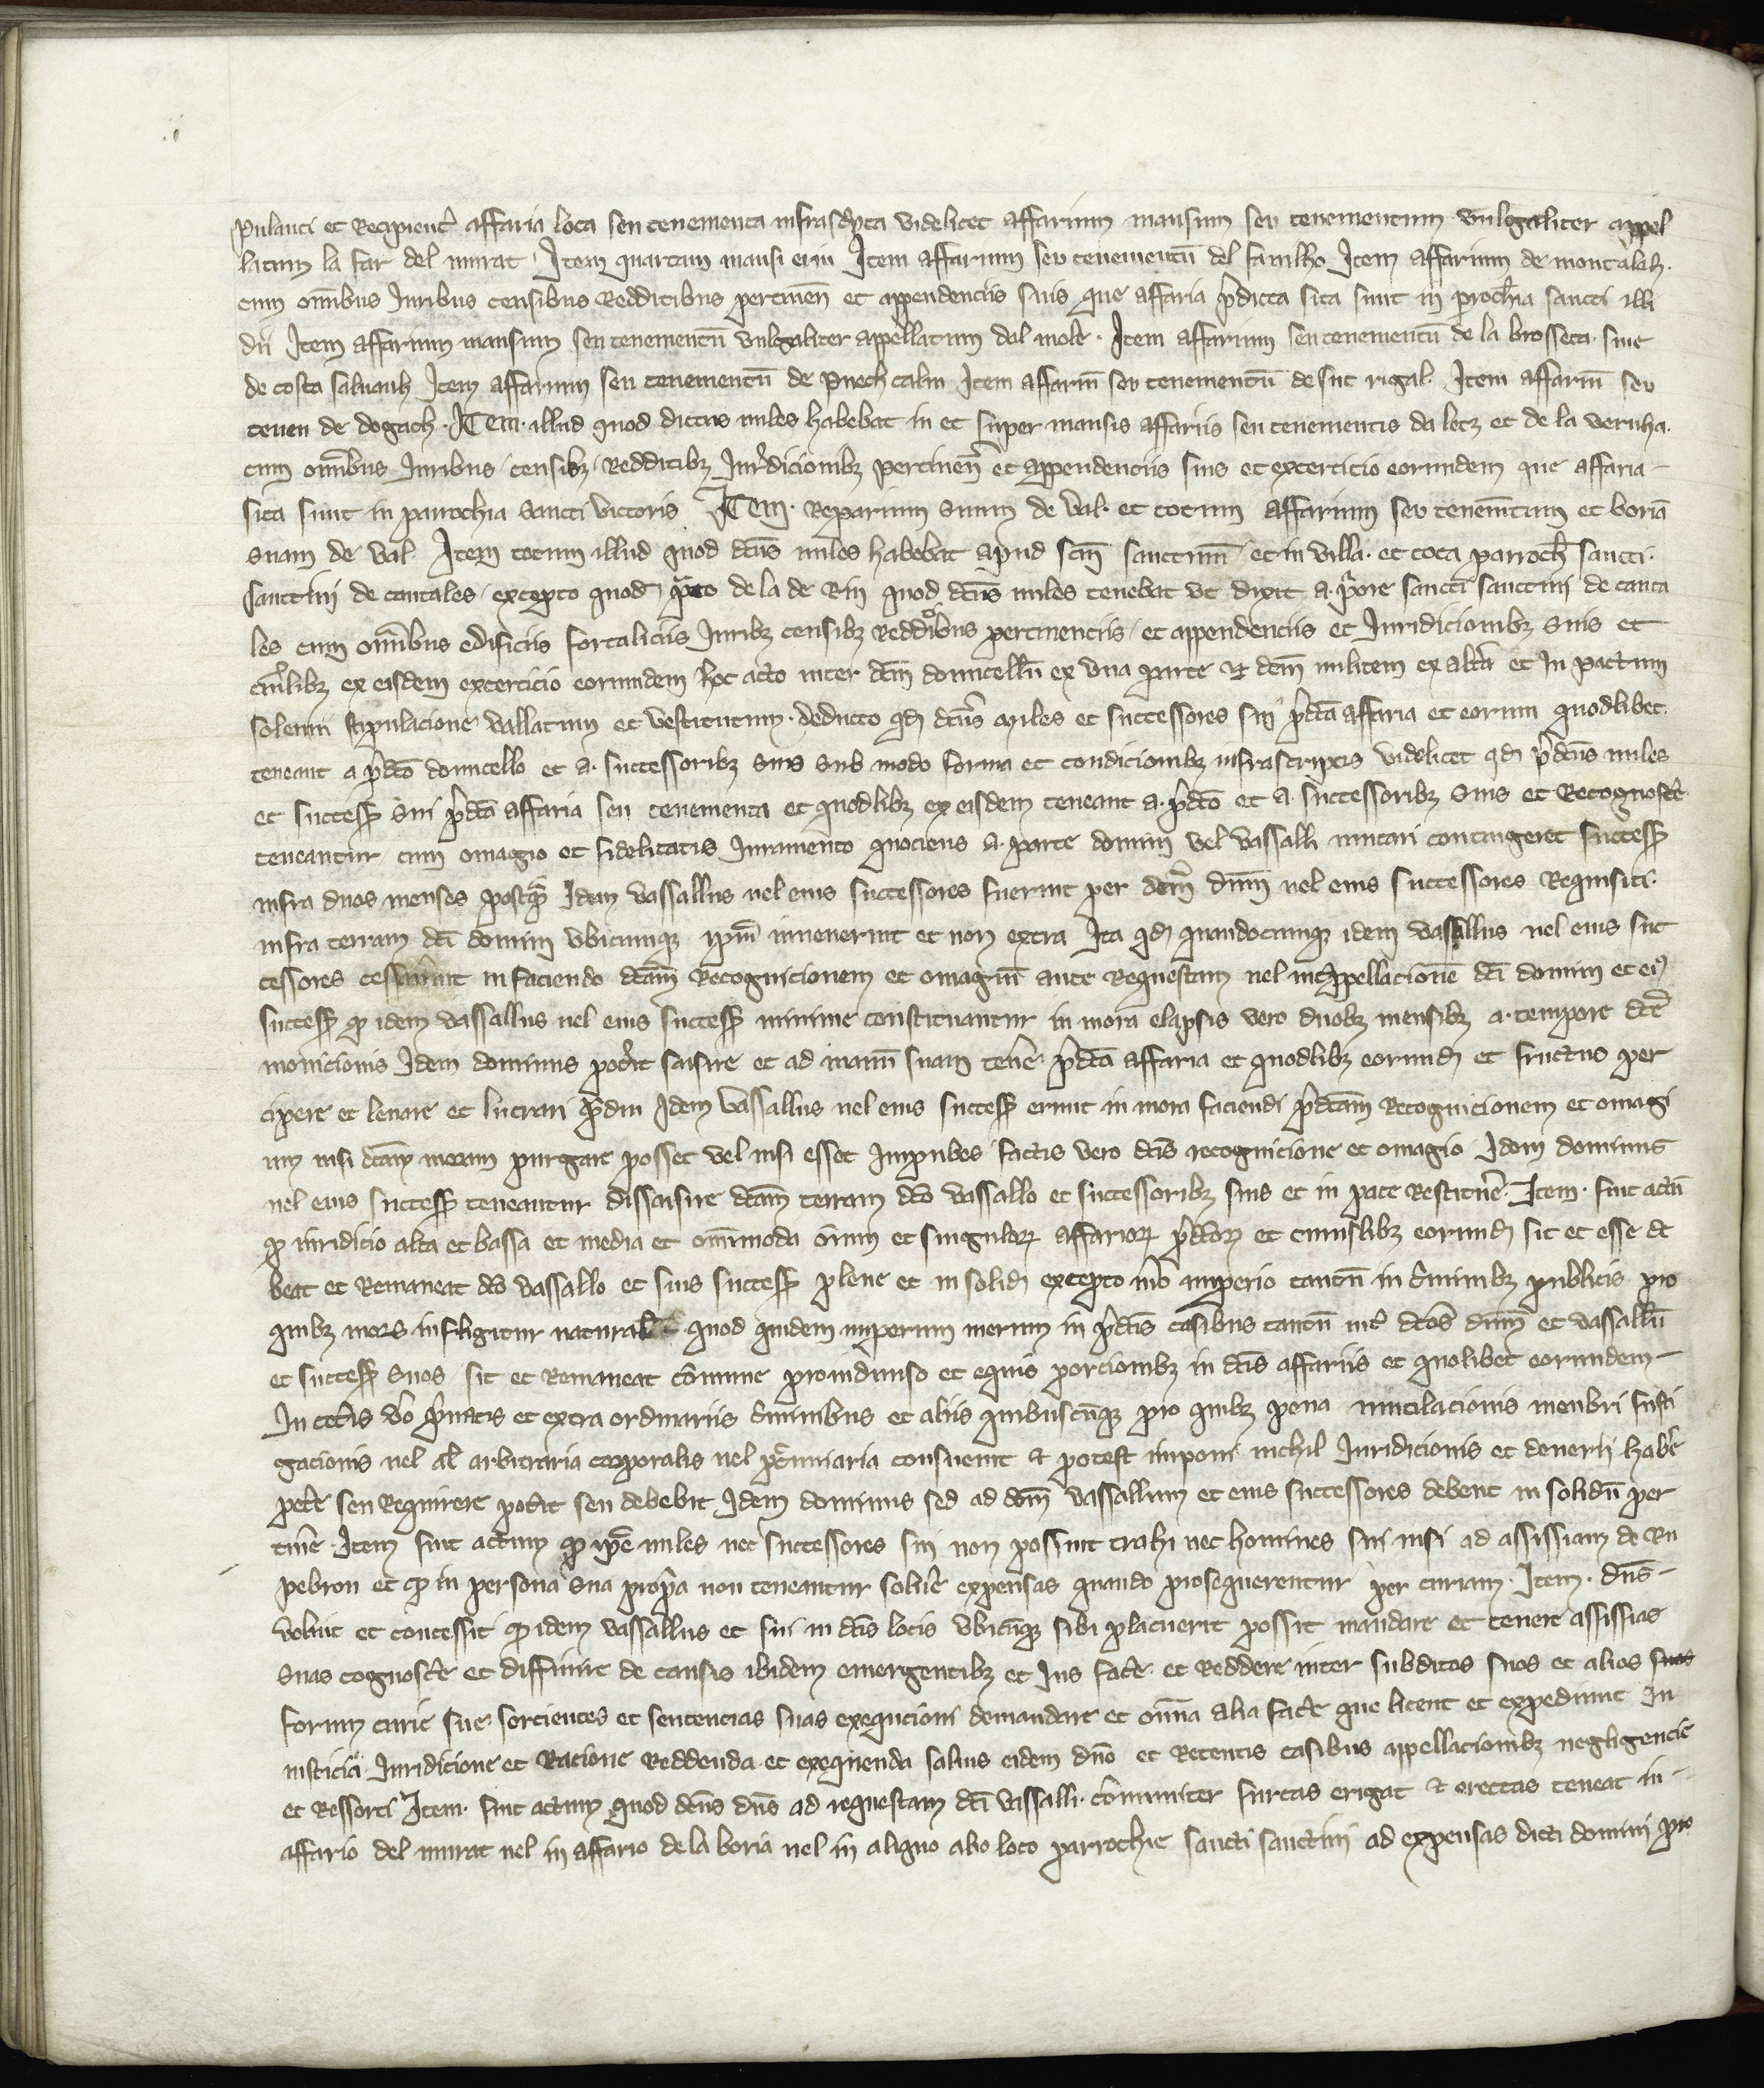 pulanti et Recipient̉ affaria loca seu tenementa infrascripta videlicet affarium mansum seu tenementum vulgaliter appel
latum la far del murat Item quartam mansi erm Item affarium seu tenementū del familho Item affarium de montalah.
cum om̄ibus Iuribus censibus Redditibus pertinen̄ et appendenciis suis que affaria p̉dicta sita sunt in proch̄ia sancti illi
dii Item affarium mansum seu tenementū vulgaliter appellatum dal mole. Item affarium seu tenementū de la brosseta. siue
de costa saluanh Item affarium seu tenementū de Puech calm Item affariū seu tenementū de suc rigal. Item affariū seu
tenen de dogach. ITem. illud quod dictus miles habebat in et super mansis affariis seu tenementis da letz et de la vernha.
cum om̄ibus Iuribus censibꝫ Redditibꝫ Iur̉dicionibꝫ pertinen̄ et appendenciis suis et excercicio eorumdem que affaria
sita sunt in parrochia sancti victoris ITem. Reparium suum de val. et totum affarium seu tenem̄tum et boriā
suam de val. Item totum illud quod dcūs miles habebat apud scm̄ sanctinū et in villa. et tota parroch̄ sancti.
sanctini de cantales excepto quod p̉to de la de Rin quod dcūs miles tenebat vt dixit a p̉ore sancti sanctini de canta
les cum om̄ibus edificiis fortaliciis Iuribꝫ censibꝫ Redditibus pertinenciis et appendenciis et Iuridicionibꝫ suis et
cuỉlibꝫ ex eisdem excercicio eorumdem hoc acto inter dcm̄ domicellū ex vna parte ⁊ dcm̄ militem ex alt̉a et in pactum
solenni stipulacione vallatum et vestitutum. deducto qd̄ dcūs miles et successores sui p̉dcā affaria et eorum quodlibet.
teneant a p̉dcō domicello et a. successoribꝫ suis sub modo forma et condicionibꝫ infrascriptis videlicet qd̄ p̉dcūs miles
et success̄ sui p̉dcā affaria seu tenementa et quodlibꝫ ex eisdem teneant a. p̉dcō et a. successoribꝫ suis et Recognosc̉e
teneantur cum omagio et fidelitatis Iuramento quociens a. parte domini vel vassalli mutari contingeret success̄
infra duos menses postq̄ Idem vassallus uel eius successores fuerint per dcm̄ dnm̄ uel eius successores Requisiti.
infra terram dcī domini vbicumqꝫ ipm̄ inuenerint et non extra Ita qd̄ quandocumqꝫ idem vassallus uel eius suc
cessores cessauerint in faciendo dcām Recognicionem et omagiū ante Requestam uel inappellacionē dcī domini et eiꝰ
success̄ ꝙ idem vassallus uel eius success̄ minime constituantur in mora elapsis vero duobꝫ mensibꝫ a. tempore dcē
monicionis Idem dominus pot̉it saisire et ad manū suam ten̉e p̉dcā affaria et quodlibꝫ eorumd̄ et fructus per
cipere et leuare et lucrari q̄diu Idem vassallus uel eius success̄ erunt in mora faciendi p̉dcām Recognicionem et omagi
um nisi dcām moram purgare posset vel nisi esset Impubes factis vero dcīs recognicione et omagio Idem dominus
uel eius success̄ teneantur dissaisire dcām terram dcō vassallo et successoribꝫ suis et in pace Restitủe. Item. fuit actū
ꝙ iuridicio alta et bassa et media et om̄imoda om̄ium et singuloꝝ affarioꝝ p̉dcoꝝ et cuiuslibꝫ eorumd̄ sit et esse de
beat et Remaneat dcō vassallo et suis success̄ plene et in solid̄ excepto m̉o imperio tantū in c̉iminibꝫ publicis pro
quibꝫ mors infligitur naturalis quod quidem imperium merum in p̉dcīs casibus tantū int̉ dcōs dnm̄ et vassallū
et success̄ suos sit et Remaneat cōmune proindiuiso et equis porcionibꝫ in dcīs affariis et quolibet eorumdem
In cet̉is vō p̉uatis et extra ordinariis c̉iminibus et aliis quibuscūqꝫ pro quibꝫ pena mutilacionis menbri fusti
gacionis uel al̄ arbitraria corporalis uel pecuniaria consueuit ⁊ potest imponi nichil Iuridicionis et deuerii hab̉e
pet̉e seu Requirere pot̉it seu debebit Idem dominus sed ad dcm̄ vassallum et eius successores debent in solidū per
tin̉e. Item fuit actum ꝙ ip̄e miles nec successores sui non possint trahi nec homines sui nisi ad assisiam de Ru
pebron et ꝙ in persona sua prop̉a non teneantur solủe expensas quando prosequerentur per curiam. Item. dn̄s
voluit et concessit ꝙ idem vassallus et sui in dcīs locis vbicūqꝫ sibi placuerit possit mandare et tenere assisias
suas cognosc̉e et diffinire de causis ibidem emergentibꝫ et Ius fac̉e et Reddere inter subditos suos et alios suos
forum curie sue sorcientes et sentencias suas exequcioni demandare et om̄ia alia fac̉e que licent et expediunt In
iusticia Iuridicione et Racione Reddenda et exequenda saluis eidem dn̄o et Retentis casibus appellacionibꝫ negligencie
et Ressorti Item. fuit actum quod dcūs dn̄s ad requestam dcī vassalli. cōmuniter furcas erigat ⁊ erectas teneat in
affario del murat uel in affario de la boria uel in aliquo alio loco parrochie sancti sanctini ad expensas dicti domini pro